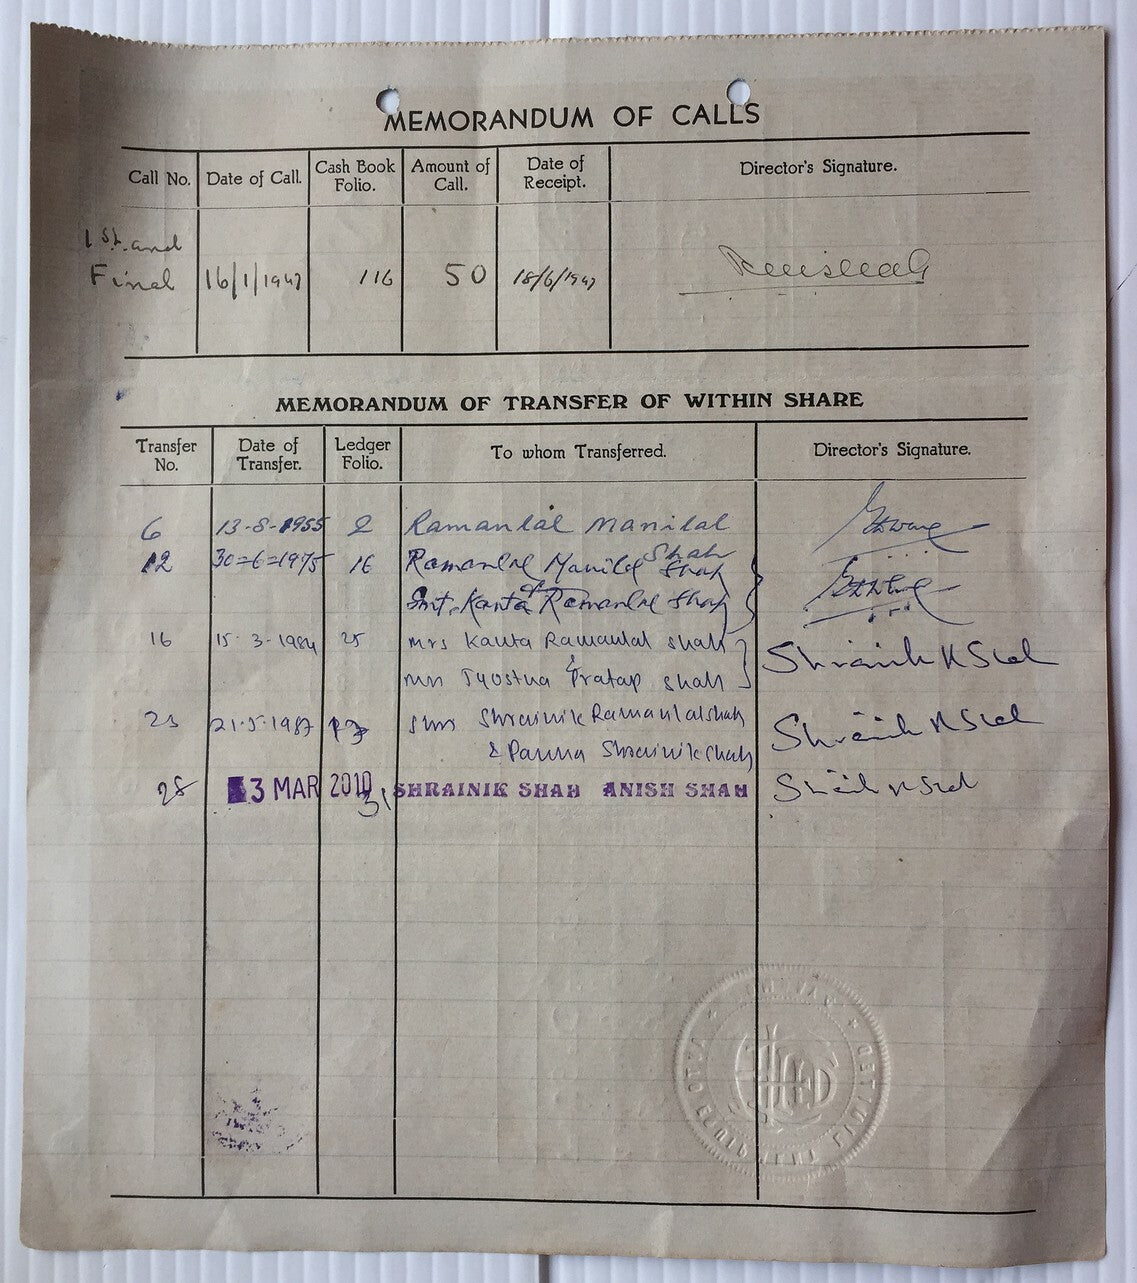 MEMORANDUM OF CALLS
Call No. Date of Call. Cash Book Folio. Amount of Call. Date of Receipt. Director's Signature.
1st. and
Final 16/1/1947 116 50 18/6/1947
MEMORANDUM OF TRANSFER OF WITHIN SHARE
Transfer No. Date of Transfer. Ledger Folio. To whom Transferred. Director's Signature.
6 13-8-1955 2 Ramanlal Manilal
Shah
12 30=6=1975 16 Ramanlal Manilal Shah
&
Smt. Kanta Ramanlal Shah
16 15-3-1984 25 Mrs Kanta Ramanlal Shah
&
Pratap Shah
21-5-1987 Shrainik Ramanlal Shah
& Panna Shrainik Shah
28 3 MAR 2010 31 SHRAINIK SHAH ANISH SHAH